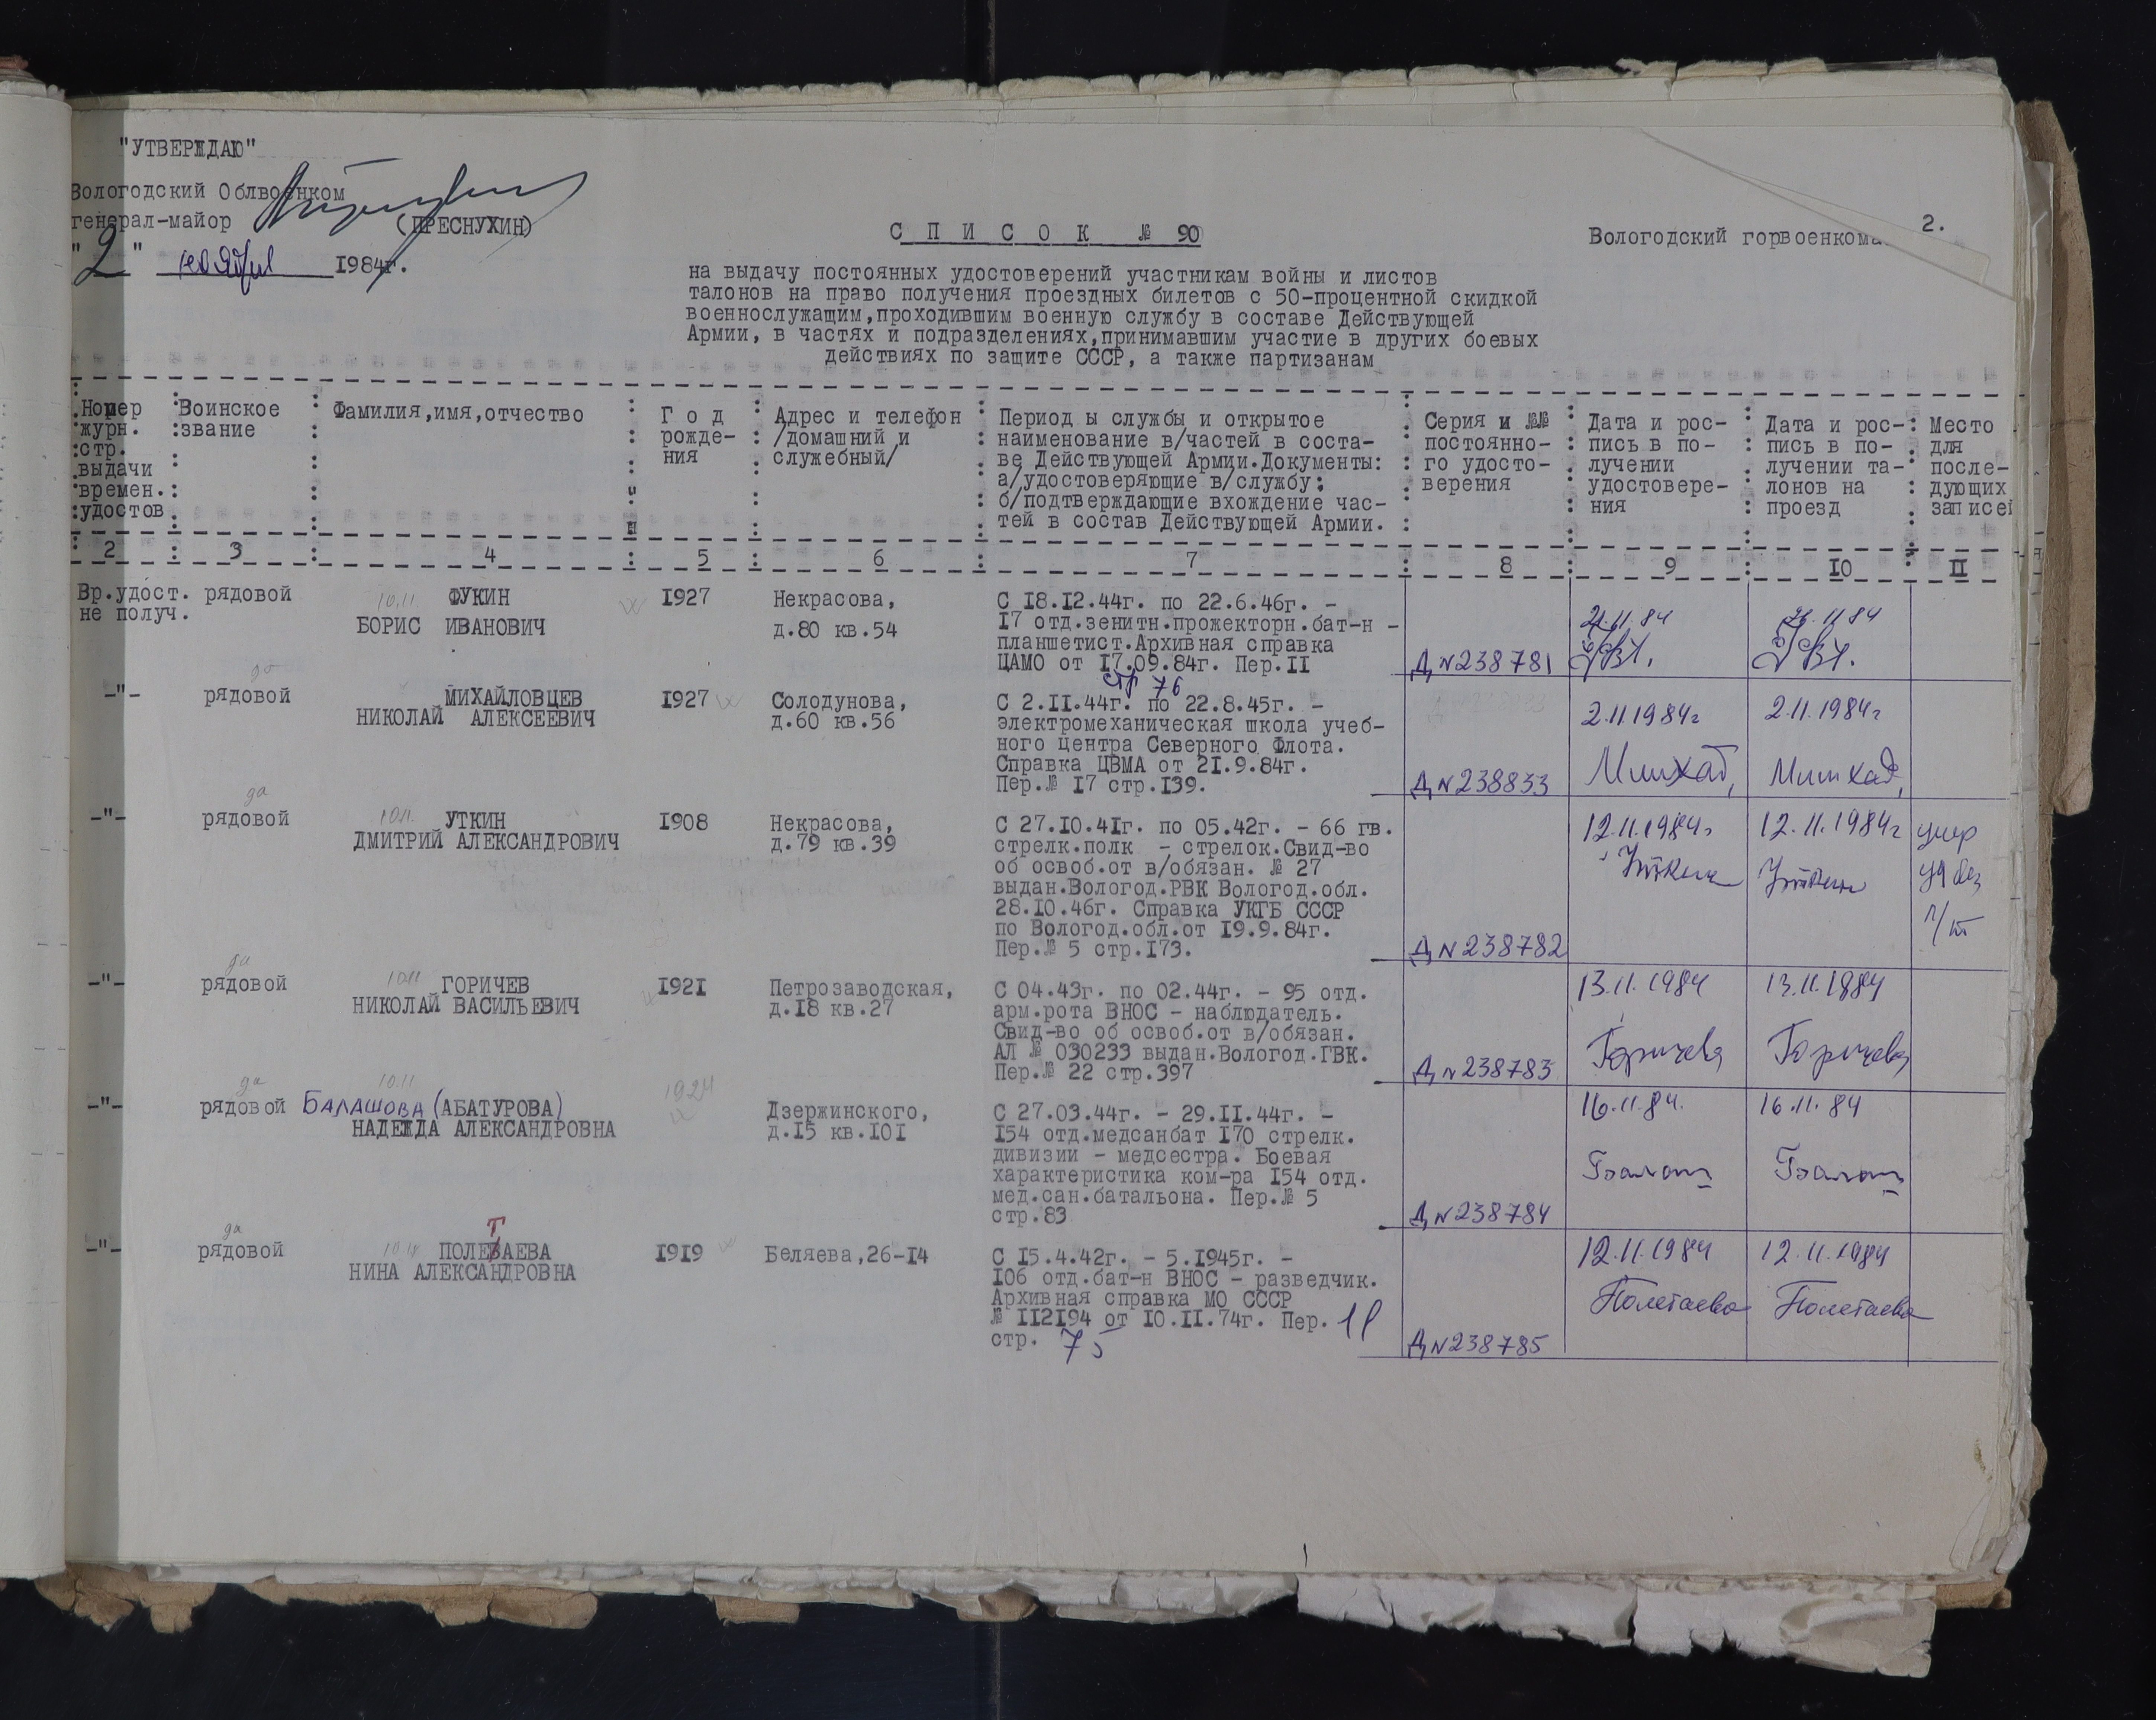 "УТВЕРЖДАЮ"
Вологодский Облвоенком
генерал-майор (ПРЕСНУХИН)
"2" ноября 1984г.
С П И С О К № 90
Вологодский горвоенкома
2.
на выдачу постоянных удостоверений участникам войны и листов
талонов на право получения проездных билетов с 50-процентной скидкой
военнослужащим,проходившим военную службу в составе Действующей
Армии, в частях и подразделениях,принимавшим участие в других боевых
действиях по защите СССР, а также партизанам
Номер
журн.
стр.
выдачи
времен.
удостов
Воинское
звание
Фамилия,имя,отчество
Г о д
рожде-
ния
Адрес и телефон
/домашний и
служебный/
Период ы службы и открытое
наименование в/частей в соста-
ве Действующей Армии.Документы:
а/удостоверяющие в/службу;
б/подтверждающие вхождение час-
тей в состав Действующей Армии.
Серия и №№
постоянно-
го удосто-
верения
Дата и рос-
пись в по-
лучении
удостовере-
ния
Дата и рос-
пись в по-
лучении та-
лонов на
проезд
Место
для
после-
дующих
записей
2 3 4 5 6 7 8 9 10 II
Вр.удост.
не получ.
рядовой
10.11
ФУКИН
БОРИС ИВАНОВИЧ
1927
Некрасова,
д.80 кв.54
С 18.12.44г. по 22.6.46г. -
17 отд.зенитн.прожекторн.бат-н -
планшетист.Архивная справка
ЦАМО от 17.09.84г. Пер.II
стр 76
Д № 238781
21.11.84
21.11.84
-"-
да
рядовой
МИХАЙЛОВЦЕВ
НИКОЛАЙ АЛЕКСЕЕВИЧ
1927
Солодунова,
д.60 кв.56
С 2.II.44г. по 22.8.45г. -
электромеханическая школа учеб-
ного центра Северного Флота.
Справка ЦВМА от 21.9.84г.
Пер.№ 17 стр.139.
Д № 238833
2.11.1984г
2.11.1984г
-"-
да
рядовой
10.11.
УТКИН
ДМИТРИЙ АЛЕКСАНДРОВИЧ
1908
Некрасова,
д.79 кв.39
С 27.10.41г. по 05.42г. - 66 гв.
стрелк.полк - стрелок.Свид-во
об освоб.от в/обязан. № 27
выдан.Вологод.РВК Вологод.обл.
28.10.46г. Справка УКГБ СССР
по Вологод.обл.от 19.9.84г.
Пер.№ 5 стр.173.
Д № 238782
12.11.1984г
Уткин
12.11.1984г
Уткин
умер
-"-
да
рядовой
10.11
ГОРИЧЕВ
НИКОЛАЙ ВАСИЛЬЕВИЧ
1921
Петрозаводская,
д.18 кв.27
С 04.43г. по 02.44г. - 95 отд.
арм.рота ВНОС - наблюдатель.
Свид-во об освоб.от в/обязан.
АЛ № 030233 выдан.Вологод.ГВК.
Пер.№ 22 стр.397
Д № 238783
13.11.1984
Горичева
13.11.1984
Горичева
-"-
да
рядовой
10.11
БАЛАШОВА (АБАТУРОВА)
НАДЕЖДА АЛЕКСАНДРОВНА
1924
Дзержинского,
д.15 кв.101
С 27.03.44г. - 29.II.44г. -
154 отд.медсанбат 170 стрелк.
дивизии - медсестра. Боевая
характеристика ком-ра 154 отд.
мед.сан.батальона. Пер.№ 5
стр.83
Д № 238784
16.11.84.
Балаш
16.11.84
Балаш
-"-
да
рядовой
Т
ПОЛЕВАЕВА
НИНА АЛЕКСАНДРОВНА
1919
Беляева,26-14
С 15.4.42г. - 5.1945г. -
106 отд.бат-н ВНОС - разведчик.
Архивная справка МО СССР
№ 112194 от 10.II.74г. Пер. 11
стр. 75
Д № 238785
12.11.1984
Полетаева
12.11.1984
Полетаева